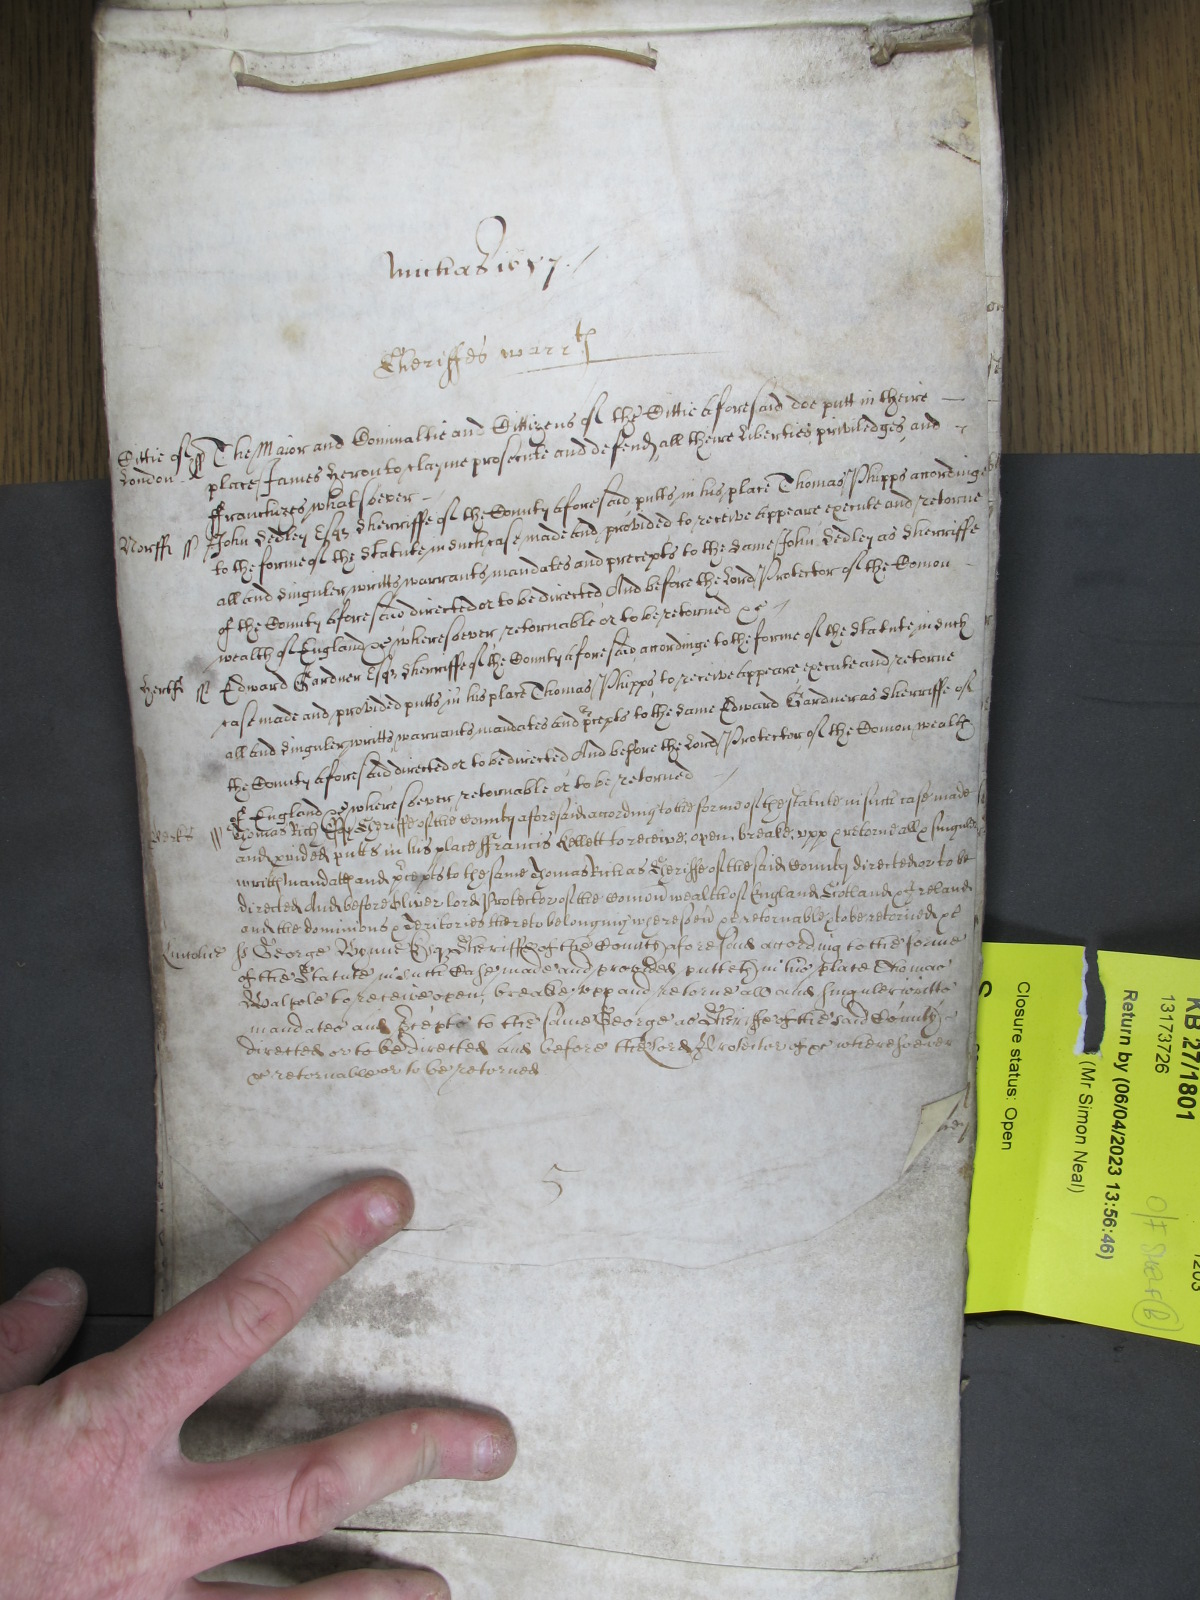 Michas 1657
Sheriffes warrts
Cittie of London ss The Maior and Cominaltie and Cittizens of the Cittie aforesaid doe putt in theire
place James Heron to clayme prosecute and defend all theire Liberties priviledges and
ffranchizes whatsoever
Norff ss John Hedley Esqr Sherriffe of the County aforesaid putts in his place Thomas Phipps accordinge
to the forme of the Statute in such case made and provided to receive appeare execute and retorne
all and singuler writts warrants mandates and precepts to the same John Hedley as Sherriffe
of the County aforesaid directed or to be directed And before the Lord Protector of the Comon
wealth of England &c wheresoever retornable or to be retorned &c
Hertf ss Edward Gardner Esqr Sherriffe of the County aforesaid accordinge to the forme of the Statute in such
case made and provided putts in his place Thomas Phipps to receive appeare execute and retorne
all and singuler writts warrants mandates and pcepts to the same Edward Gardner as Sherriffe of
the County aforesaid directed or to be directed And before the Lord Protector of the Comon wealth
of England &c wheresoever retornable or to be retorned
Berks ss Thomas Rich Esqr Sheriffe of the County aforesaid according to the forme of the statute in such case made
and pvided putts in his place ffrancis Kellett to receive, open, breake, upp & retorne all & singuler
writts mandats and pcepts to the same Thomas Rich as Sheriffe of the said County directed or to be
directed And before Oliver Lord Protector of the Comon wealth of England Scotland & Ireland
and the dominions & Territories thereto belonging wheresoev &c retornable & to be retorned &c
ss George Bonne Esqr Sheriffe of the County aforesaid according to the forme
of the Statute in such Case made and provided putteth in his place Thomas
Walpole to receive open, breake upp and retorne all and singuler writts
mandates and pcepts to the same George as Sheriffe of the said County
directed or to be directed and before the Lord Protector of &c wheresoever
&c retornable or to be retorned
5
KB 27/1801
13173726
Return by (06/04/2023 13:56:46)
(Mr Simon Neal)
Closure status: Open
O/F SHELF (B)